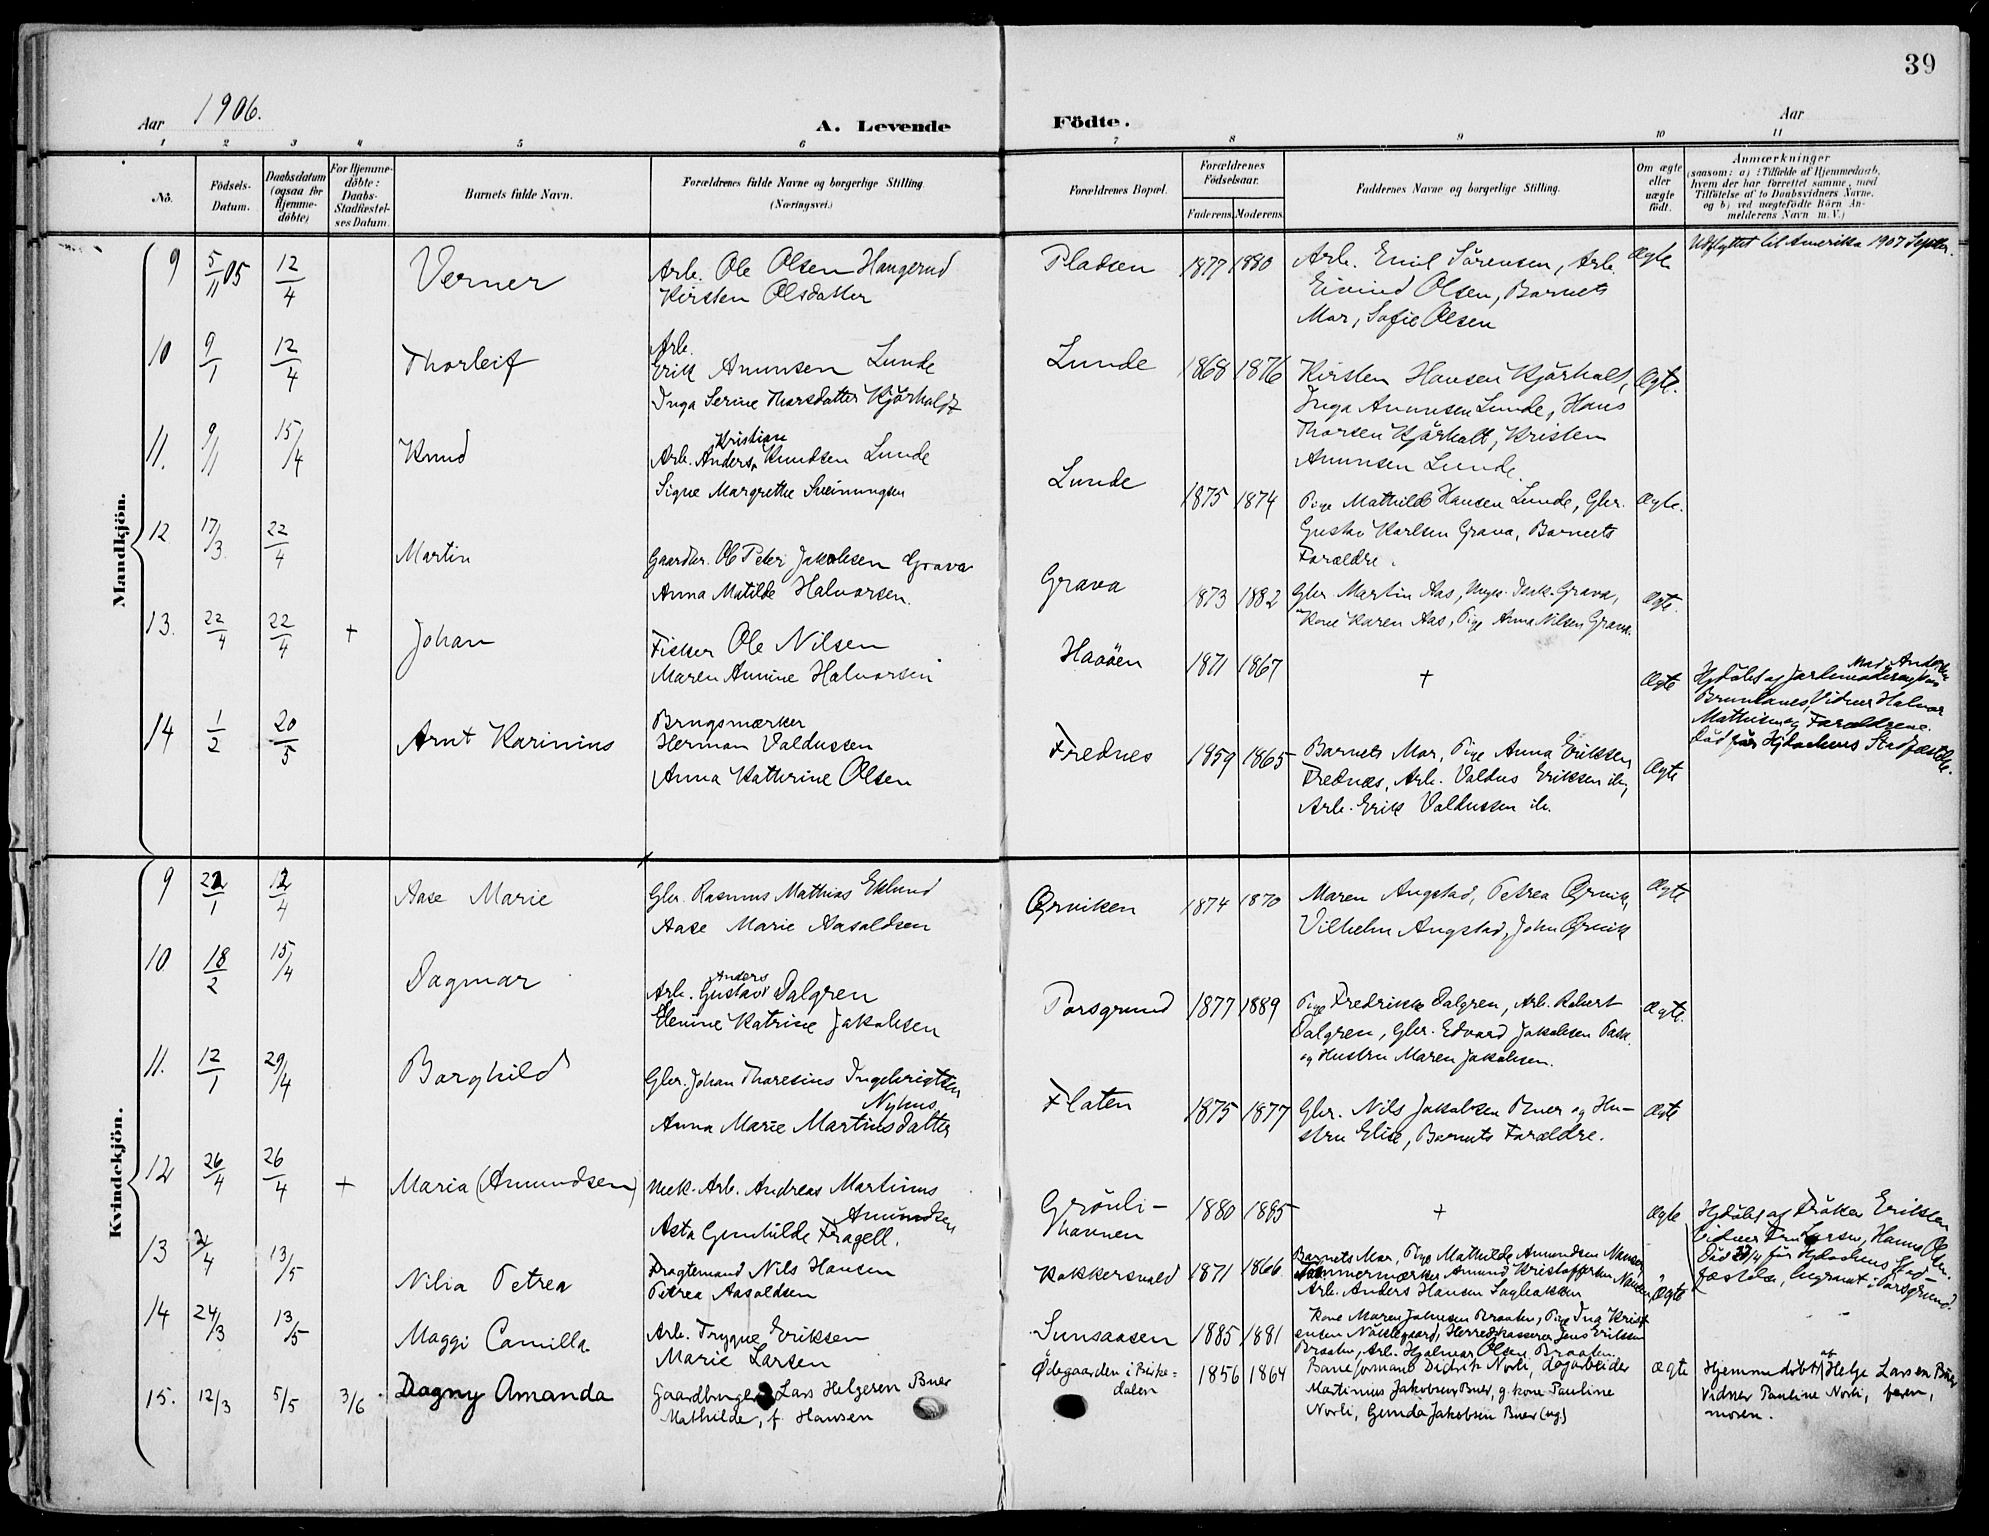 39
Aar 1906.
A. Levende Födte.
Aar
1 2 3 4 5 6 7 8 9 10 11
No.
Födsels-Datum.
Daabsdatum (ogsaa for Hjemme-döbte)
For Hjemme-döbte: Daabs-Stadfæstel-ses Datum.
Barnets fulde Navn.
Forældrenes fulde Navne og borgerlige Stilling.
(Næringsvei.)
Forældrenes Bopæl.
Forældrenes Födselsaar.
Faderens. Moderens.
Faddernes Navne og borgerlige Stilling.
Om ægte eller uægte födt.
Anmærkninger
(saasom: a) i Tilfælde af Hjemmedaab,
hvem der har forrettet samme, med
Tilföielse af to Daabsvidners Navne.
og b) ved uægtefödte Börn An-
melderens Navn m. V.)
Mandkjön.
9 5/11 05 12/4 Verner Arb. Ole Olsen Haugerud Pladsen 1877 1880 Arb. Emil Sörensen, Arb. Ægte Udflyttet til Amerika 1907 Septbr.
Kirsten Olsdatter Eivind Olsen, Barnets
Mor, Sofie Olsen
10 9/1 12/4 Thorleif Arb.
Erik Amunsen Lunde Lunde 1868 1876 Kirsten Hansen Kjörholt, Ægte.
Inga Serine Thorsdatter Kjörholdt Inga Amunsen Lunde, Hans
Thorsen Kjörholt, Kristen
Amunsen Lunde.
11. 9/11 15/4 Knud Kristian
Arb. Anders Knudsen Lunde Lunde 1875 1874 Pige Mathilde Hansen Lunde, Gbr. Ægte.
Signe Margrethe Sveinungsen Gustav Karlsen Grava, Barnets
Forældre.
12. 17/3 22/4 Martin Gaardbr. Ole Peter Jakobsen Grava Grava 1873 1882 Gbr. Martin Aas, Grava, Ægte.
Anna Matilde Halvorsen. Kone Karen Aas, Pige Anna Nilsen Grava.
13. 22/4 22/4 + Johan Fisker Ole Nilsen Haaöen 1871 1867 + Ægte Hjdöbt af Jordemoder
Maren Annine Halvorsen Vidner Halvor
Mathisen og Forældrene.
Död før Hjdaabens Stadfæstelse.
14 1/2 20/5 Arnt Karinius Brugsmærker
Herman Valdussen Frednes 1859 1865 Barnets Mor, Pige Anna Eriksen Ægte
Anna Kathrine Olsen Frednes, Arb. Valdus Eriksen ib,
Arb. Erik Valdussen ib.
Kvindekjön.
9 22/1 12/4 Aase Marie Gbr. Rasmus Mathias Eklund Ørviken 1874 1870 Maren Angstad, Petrea Ørvik, Ægte
Aase Marie Aasoldsen Vilhelm Angstad, John Ørvik
10 18/2 15/4 Dagmar Anders
Arb. Gustav Dalgren Porsgrund 1877 1889 Pige Fredrikke Dalgren, Arb. Robert Ægte.
Elenine Katrine Jakobsen Dalgren, Gbr. Edvard Jakobsen
og Hustru Maren Jakobsen.
11. 12/1 29/4 Borghild Gbr. Johan Thoresius Ingebrigtsen Flaten 1875 1877 Gbr. Nils Jakobsen Buer og Hu- Ægte
Nyhus
Anna Marie Martinsdatter stru Elise, Barnets Forældre.
12 26/4 26/4 + Maria (Amundsen) Mek. Arb. Andreas Martinus Grönli- 1880 1885 + Ægte Hjdöbt af Frøken Eriksen
Amundsen havnen Vidner Fru Larsen, Hanna Olsen.
Asta Gunhilde Fragell. Död för Hjdaabens Stad-
fæstelse, begravet i Porsgrund.
13 2/4 13/5 Nilia Petrea Dragtemand Nils Hansen Kokkersvold 1871 1866 Barnets Mor, Pige Mathilde Amundsen
Petrea Aasoldsen Tömmermærker Amund Kristoffersen Ægte
Arb. Anders Hansen Sagbakken
14 24/3 13/5 Maggi Camilla Arb. Trygve Eriksen Sunsaasen 1885 1881 Kone Maren Johnsen Braaten, Pige Ina Krist-
Marie Larsen ensen, Herredskasserer Jens Eriksen
Arb. Hjalmar Olsen Braaten.
15. 12/3 5/5 3/6 Dagny Amanda Gaardbruger Lars Helgesen Buer Ødegaarden i Birke- 1856 1864 Baneformand Didrik Norli, dagarbeider ægte Hjemmedöbt af Helge Larsen Buer
Mathilde, f. Hansen dalen Martinius Jakobsen Buer, g. kone Pauline Vidner Pauline Norli, faren,
Norli, Gunda Jakobsen Buer (ug) moren.